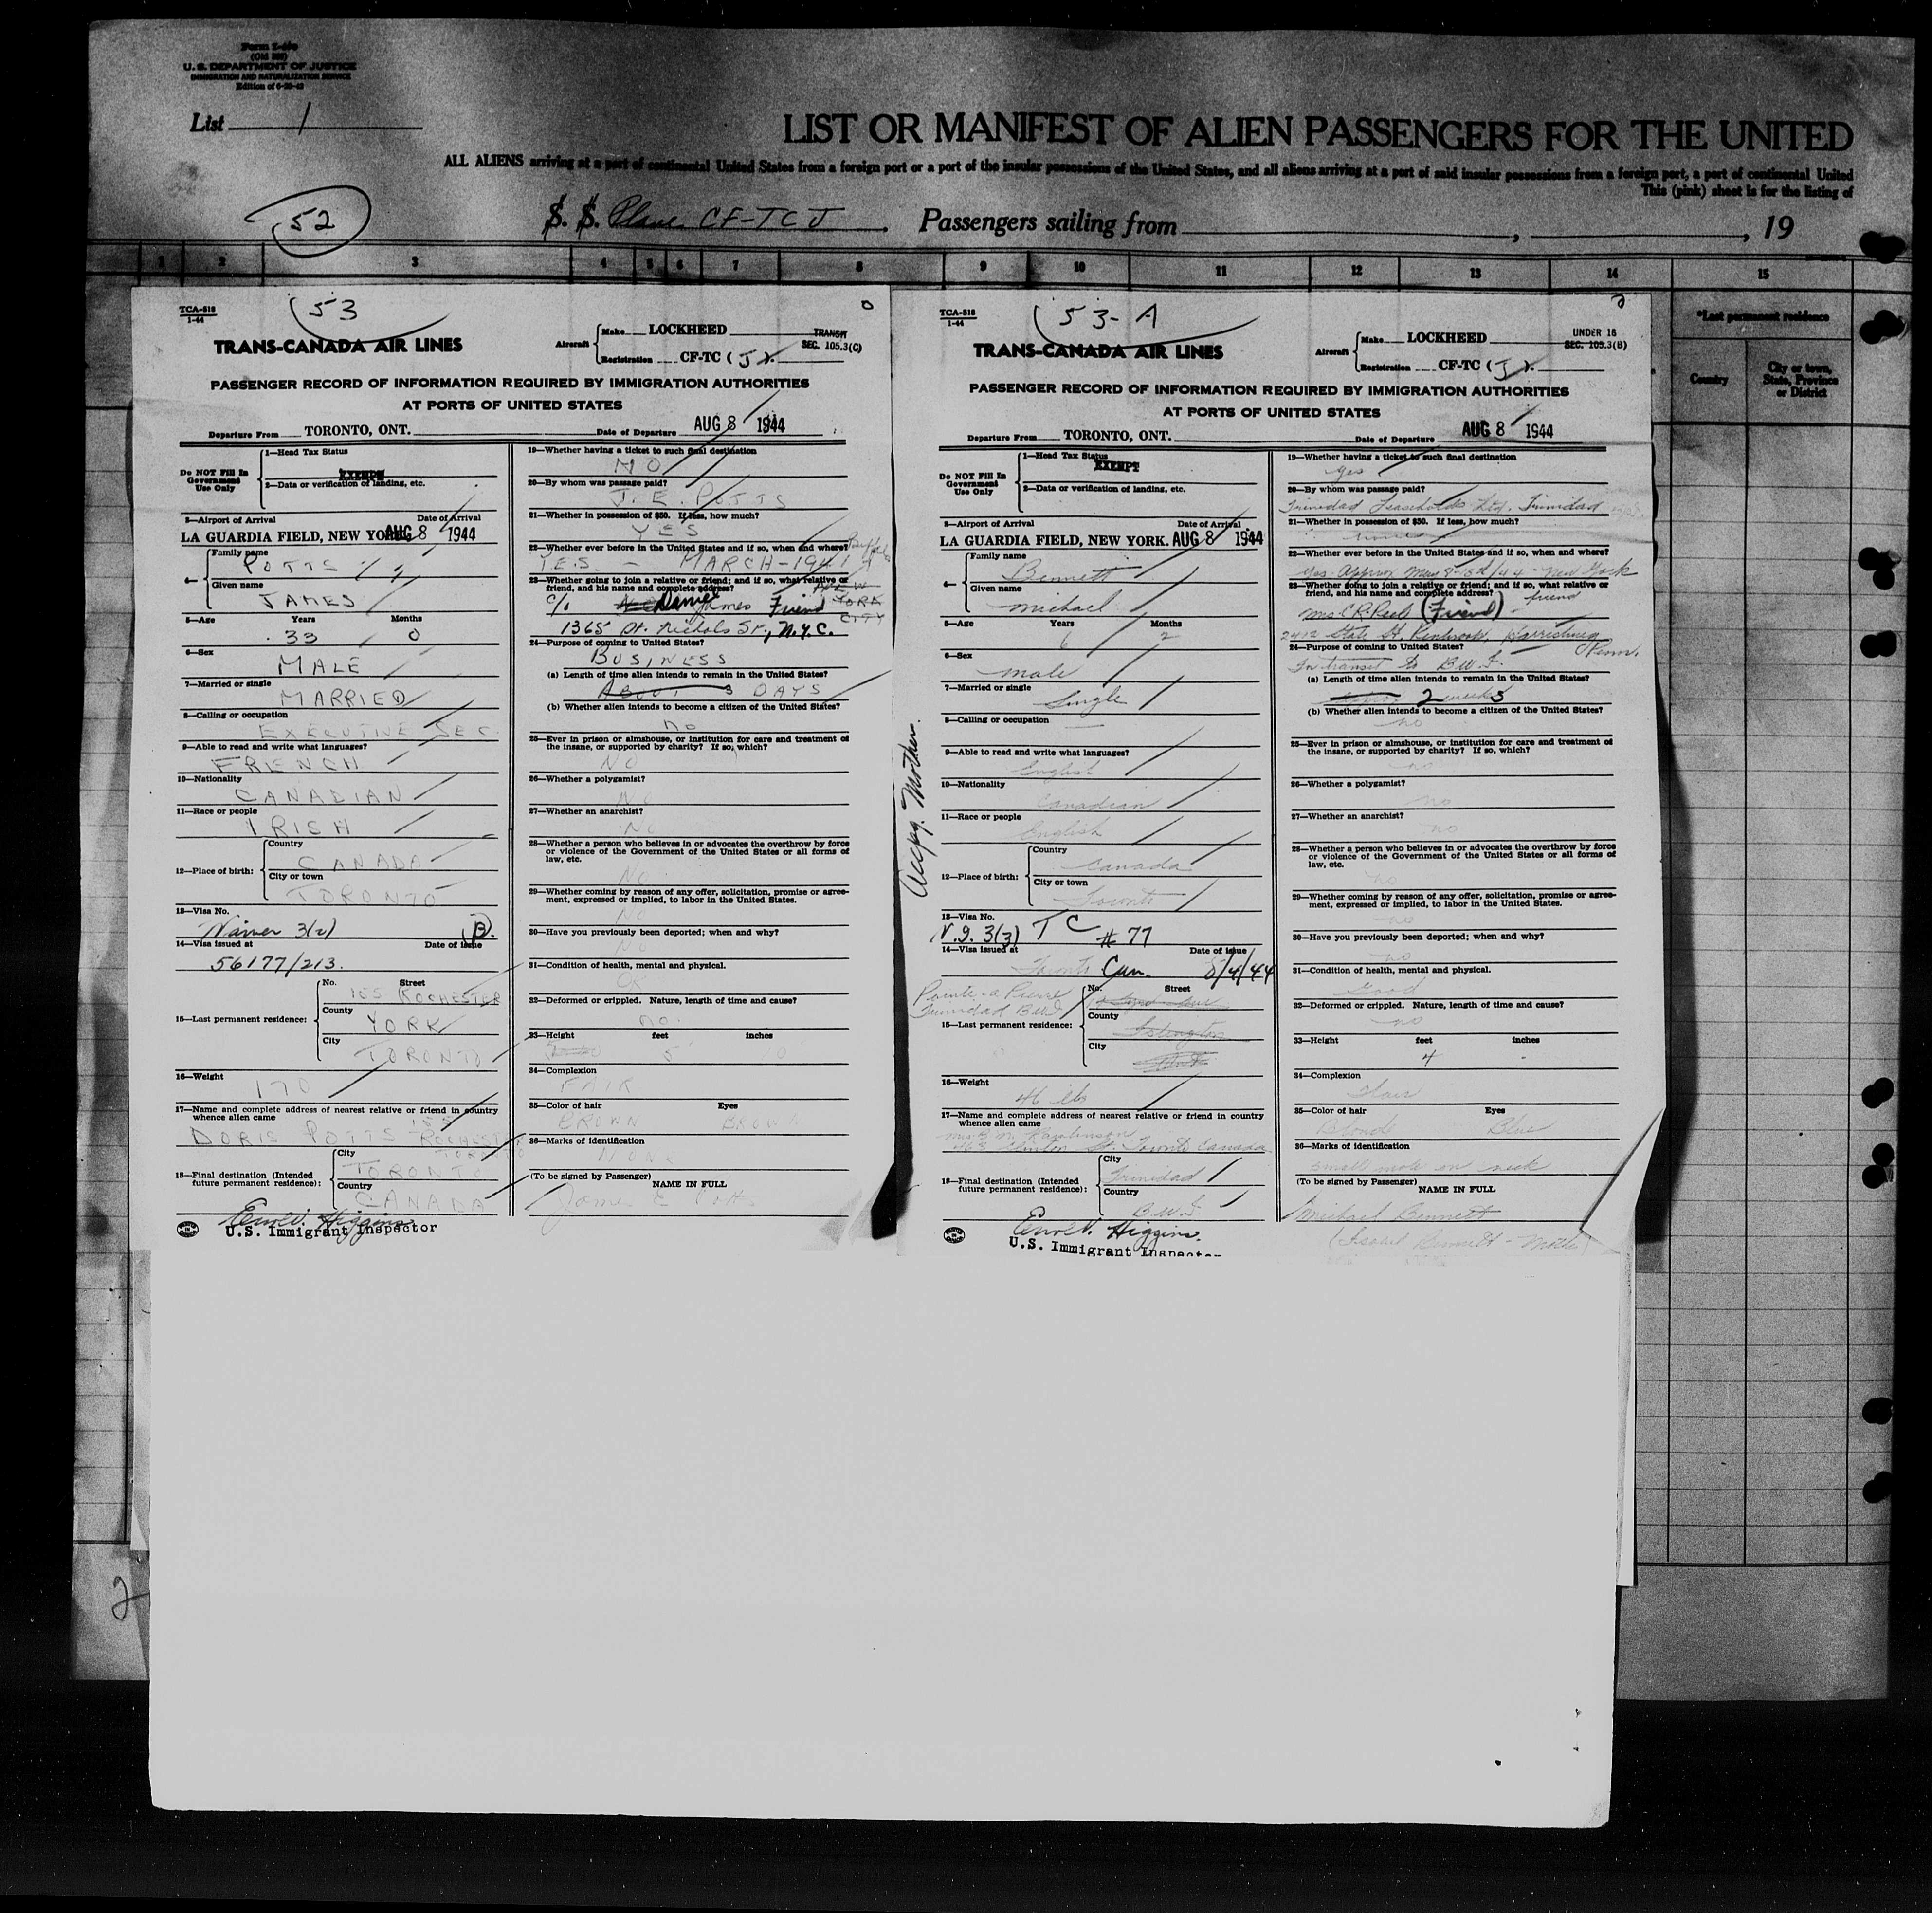 Form I-466
(Old 500)
U. S. DEPARTMENT OF JUSTICE
IMMIGRATION AND NATURALIZATION SERVICE
List 1
LIST OR MANIFEST OF ALIEN PASSENGERS FOR THE UNITED
ALL ALIENS arriving at a port of continental United States from a foreign port or a port of the insular possessions of the United States, and all aliens arriving at a port of said insular possessions from a foreign port, a port of continental United
This (pink) sheet is for the listing of
52
S. S. Plane CF-TCJ. Passengers sailing from , , 19
1 2 3 4 5 6 7 8 9 10 11 12 13 14 15
*Last permanent residence
Country
City or town, State, Province or District
TCA-518
1-44
53
TRANS-CANADA AIR LINES
Aircraft
Make LOCKHEED
Registration CF-TC (J).
TRANSIT
SEC. 105.3(C)
PASSENGER RECORD OF INFORMATION REQUIRED BY IMMIGRATION AUTHORITIES
AT PORTS OF UNITED STATES
Departure From TORONTO, ONT. Date of Departure AUG 8 1944
Do NOT Fill In Government Use Only
1—Head Tax Status
EXEMPT
2—Data or verification of landing, etc.
3—Airport of Arrival Date of Arrival
LA GUARDIA FIELD, NEW YORK. AUG 8 1944
4—
Family name
POTTS
Given name
JAMES
5—Age Years Months
33 0
6—Sex
MALE
7—Married or single
MARRIED
8—Calling or occupation
EXECUTIVE SEC
9—Able to read and write what languages?
FRENCH
10—Nationality
CANADIAN
11—Race or people
IRISH
12—Place of birth:
Country
CANADA
City or town
TORONTO
13—Visa No.
Waiver 3(2) B.
14—Visa issued at Date of issue
56177/213.
15—Last permanent residence:
No. Street
165 ROCHESTER
County
YORK
City
TORONTO
16—Weight
170
17—Name and complete address of nearest relative or friend in country
whence alien came
DORIS POTTS ROCHEST
TORONTO
18—Final destination (Intended
future permanent residence):
City
TORONTO
Country
CANADA
Higgins
U.S. Immigrant Inspector
19—Whether having a ticket to such final destination
NO
20—By whom was passage paid?
J. E. POTTS
21—Whether in possession of $50. If less, how much?
YES
22—Whether ever before in the United States and if so, when and where?
YES - MARCH-1941
23—Whether going to join a relative or friend; and if so, what relative or
friend, and his name and complete address?
NEW YORK CITY
c/o Daniel James Friend
1365 St. Nichols St., N.Y.C.
24—Purpose of coming to United States?
BUSINESS
(a) Length of time alien intends to remain in the United States?
ABOUT 3 DAYS
(b) Whether alien intends to become a citizen of the United States?
no
25—Ever in prison or almshouse, or institution for care and treatment of
the insane, or supported by charity? If so, which?
NO
26—Whether a polygamist?
NO
27—Whether an anarchist?
NO
28—Whether a person who believes in or advocates the overthrow by force
or violence of the Government of the United States or all forms of
law, etc.
NO
29—Whether coming by reason of any offer, solicitation, promise or agree-
ment, expressed or implied, to labor in the United States.
NO
30—Have you previously been deported; when and why?
NO
31—Condition of health, mental and physical.
OK
32—Deformed or crippled. Nature, length of time and cause?
no.
33—Height feet inches
5
34—Complexion
FAIR
35—Color of hair Eyes
BROWN BROWN
36—Marks of identification
NONE
(To be signed by Passenger)
NAME IN FULL
James E Potts
TCA-518
1-44
53-A
TRANS-CANADA AIR LINES
Aircraft
Make LOCKHEED
Registration CF-TC (J).
UNDER 16
SEC. 105.3(B)
PASSENGER RECORD OF INFORMATION REQUIRED BY IMMIGRATION AUTHORITIES
AT PORTS OF UNITED STATES
Departure From TORONTO, ONT. Date of Departure AUG 8 1944
Do NOT Fill In Government Use Only
1—Head Tax Status
EXEMPT
2—Data or verification of landing, etc.
3—Airport of Arrival Date of Arrival
LA GUARDIA FIELD, NEW YORK. AUG 8 1944
4—
Family name
Bennett
Given name
Michael
5—Age Years Months
6 2
6—Sex
male
7—Married or single
Single
8—Calling or occupation
9—Able to read and write what languages?
English
10—Nationality
Canadian
11—Race or people
English
12—Place of birth:
Country
Canada
City or town
Toronto
Accpg. Mother.
13—Visa No.
N.I. 3(3) TC #77
14—Visa issued at Date of issue
Toronto Can. 8/4/44
Pointe-a-Pierre
Trinidad B.W.I.
15—Last permanent residence:
No. Street
County
Islington
City
16—Weight
46 lbs
17—Name and complete address of nearest relative or friend in country
whence alien came
Clinton St. Toronto Canada
18—Final destination (Intended
future permanent residence):
City
Trinidad
Country
B.W.I.
Higgins.
U.S. Immigrant Inspector
19—Whether having a ticket to such final destination
yes
20—By whom was passage paid?
Trinidad Leaseholds Ltd. Trinidad
21—Whether in possession of $50. If less, how much?
none
22—Whether ever before in the United States and if so, when and where?
Yes - Approx May 8-15th/44 - New York
23—Whether going to join a relative or friend; and if so, what relative or
friend, and his name and complete address?
friend
Mrs. C.R. Peele (Friend)
2412 State St. Penbrook, Harrisburg
Penn.
24—Purpose of coming to United States?
In transit to B.W.I.
(a) Length of time alien intends to remain in the United States?
2 weeks
(b) Whether alien intends to become a citizen of the United States?
no
25—Ever in prison or almshouse, or institution for care and treatment of
the insane, or supported by charity? If so, which?
no
26—Whether a polygamist?
no
27—Whether an anarchist?
no
28—Whether a person who believes in or advocates the overthrow by force
or violence of the Government of the United States or all forms of
law, etc.
no
29—Whether coming by reason of any offer, solicitation, promise or agree-
ment, expressed or implied, to labor in the United States.
no
30—Have you previously been deported; when and why?
no
31—Condition of health, mental and physical.
Good
32—Deformed or crippled. Nature, length of time and cause?
no
33—Height feet inches
4 -
34—Complexion
Fair
35—Color of hair Eyes
Blonde Blue
36—Marks of identification
small mole on neck
(To be signed by Passenger)
NAME IN FULL
Michael Bennett
(Isabel Bennett - Mother)
2